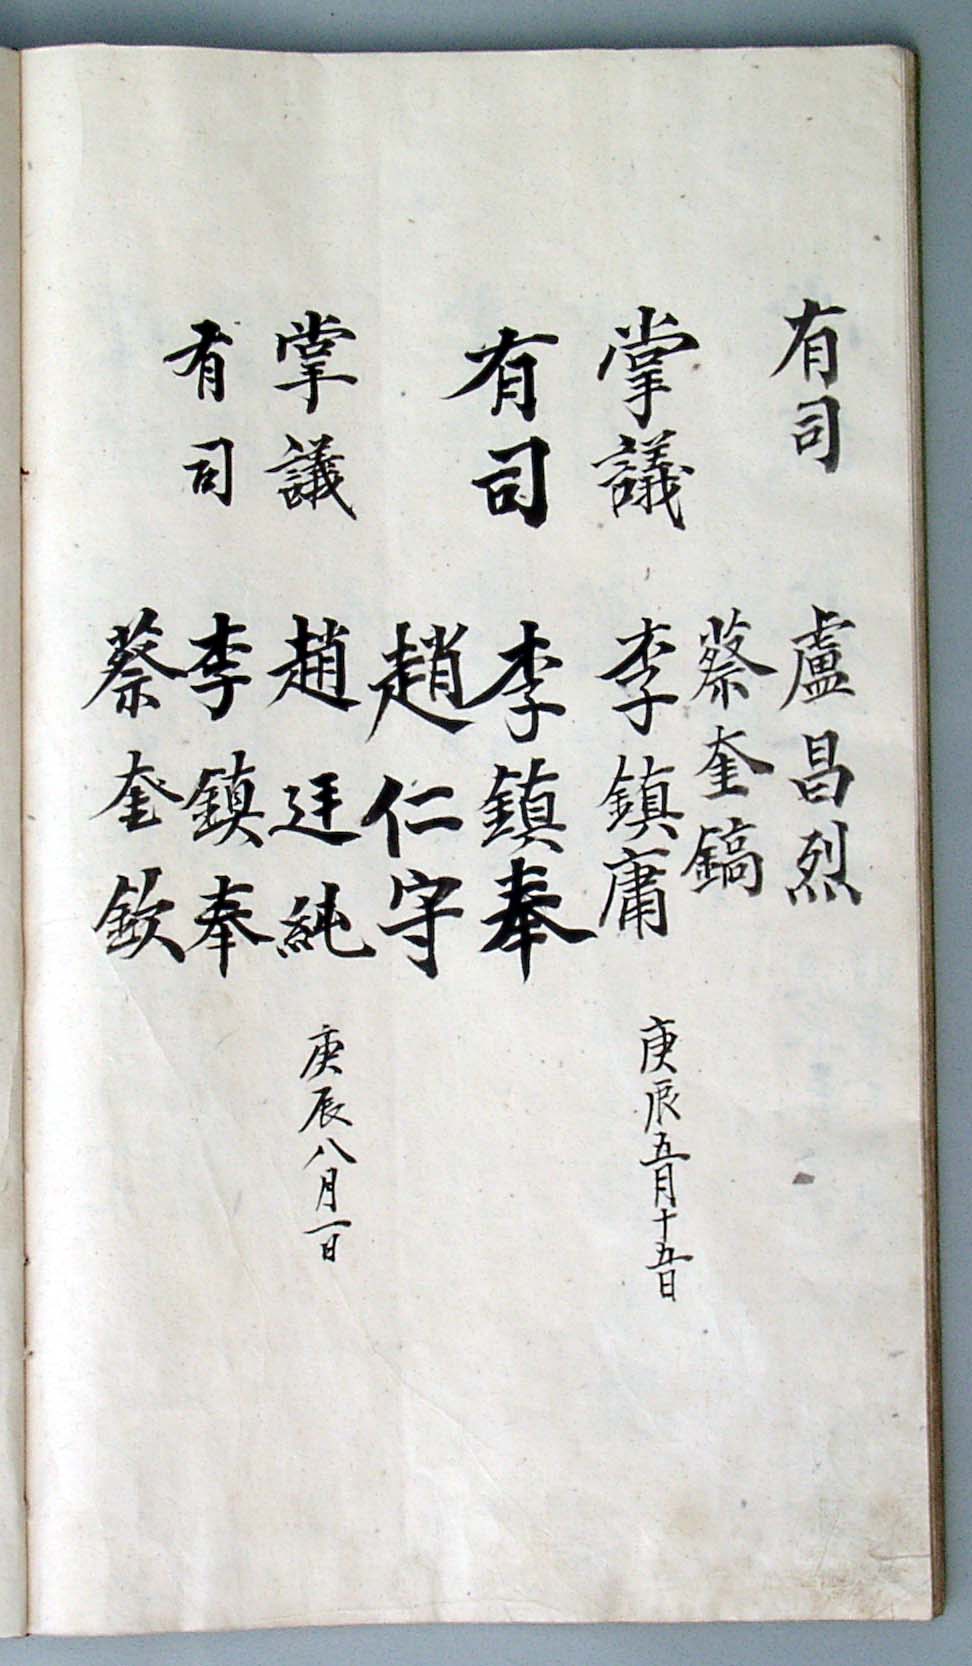 有司 盧昌烈
蔡奎鎬
掌議 李鎮庸 庚辰五月十五日
有司 李鎮奉
趙仁守
掌議 趙廷純 庚辰八月一日
有司 李鎮奉
蔡奎欽